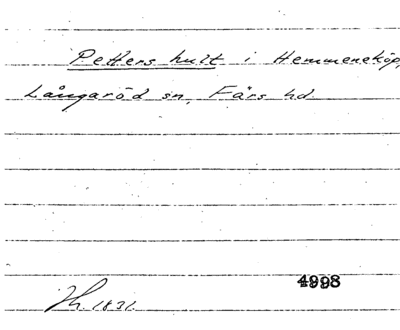 Petters hult i Hemmeneköp,
Långaröd sn, Färs hd.
4998
Jh. 1831.